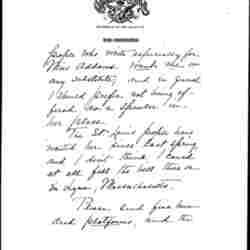 people who wrote especially for
Miss Addams. Want her or
any substitute; and in general
I should prefer not being of-
fered as a speaker in
her place.
The St. Louis people have
wanted her since last spring
and I don't think I could
at all fill the bill there or
in Lynn, Massachusetts.
These and five
and platforms, and the